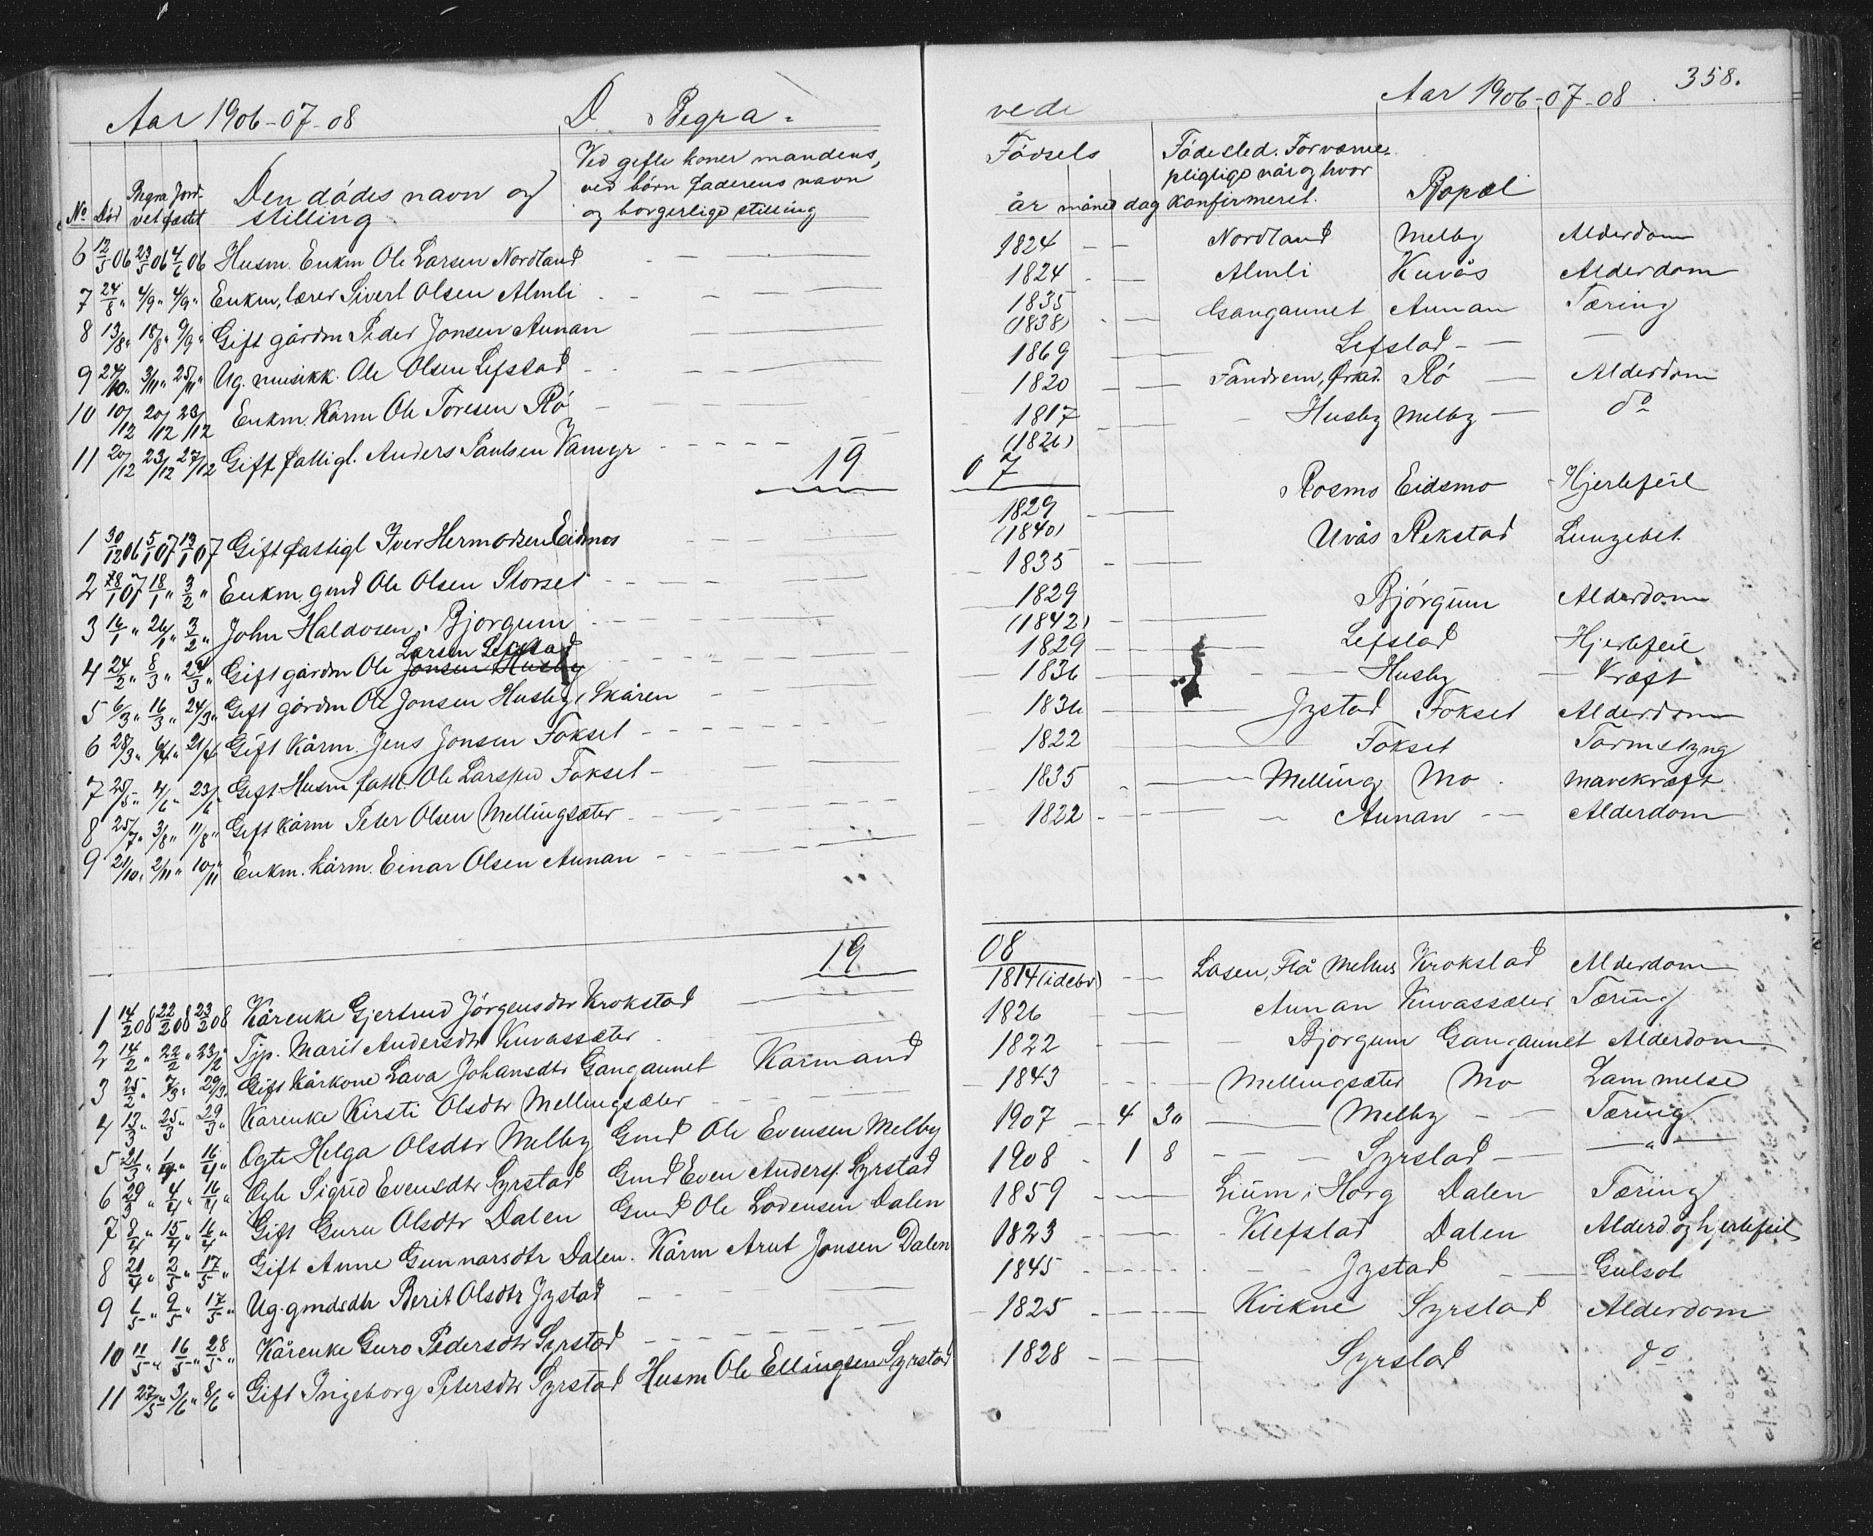 Aar 1906-07-08 D Begra-
vede Aar 1906-07-08 358.
No Død Begravet Jordfæstet Den dødes navn og stilling Ved gifte koner mandens, ved børn faderens navn og borgerlige stilling
Fødsels år måned dag Fødested. For værnepligtige når og hvor konfirmeret. Bopæl
6 12/5 06 23/5 06 4/6 06 Husm. Enkm Ole Larsen Nordland 1824 Nordland Melby Alderdom
7 24/8 " 4/9 " 4/9 " Enkm, lærer Sivert Olsen Almli 1824 Almli Kuvås Alderdom
8 13/8 " 18/8 " 9/9 " Gift gårdm Peder Jonsen Aunan 1835 (1838) Gangaunet Aunan Tæring
9 24/10 " 3/11 " 25/11 " Ug. musikk. Ole Olsen Lefstad 1869 Lefstad
10 10/12 20/12 23/12 Enkm. Kårm Ole Toresen Rø 1820 Fandrem, Ørked. Rø Alderdom
11 20/12 23/12 27/12 Gift fattigl. Anders Paulsen Vamyr 1817 (1826) Husby Melby do
19 07
1 30/12 06 5/1 07 13/1 07 Gift fattigl Iver Hermodsen Eidsmo 1829 (1840) Rosmo Eidsmo Hjertefeil
2 28/1 07 18/1 " 3/2 " Enkm. gmd Ole Olsen Storset 1835 Uvås Rekstad Lungebet.
3 16/1 " 26/1 " 3/2 " John Haldosen Bjørgum 1829 (1842) Bjørgum Alderdom
4 24/2 " 8/3 " 24/3 " Gift gårdm Ole Jonsen Husby Larsen Lefstad 1829 Lefstad Hjertefeil
5 6/3 " 16/3 " 24/3 " Gift gårdm Ole Jonsen Husby, Skåren 1836 Husby Kræft
6 28/3 " 6/4 " 21/4 Gift Kårm. Jens Jonsen Fokset 1836 Jystad Fokset Alderdom
7 25/5 " 4/6 " 23/6 Gift Husm fattl. Ole Larsen Fokset 1822 Fokset Tarmslyng
8 25/7 " 3/8 " 11/8 " Gift Kårm Peter Olsen Mellingsæter 1835 Melling Mo mavekræft
9 21/10 " 2/11 " 10/11 Enkm. kårm. Einar Olsen Aunan 1822 Aunan Alderdom
19 08
1 14/2 08 22/2 08 23/2 08 Kårenke Gjertrud Jørgensdtr Krokstad 1814 (idebr) Losen, Flå Melhus Krokstad Alderdom
2 14/2 " 22/2 " 23/2 " Tjp. Marit Andersdtr Kuvassæter 1826 Aunan Kuvassæter Tæring
3 25/2 " 7/3 " 29/3 " Gift Kårkone Lava Johansdtr Gangaunet Kårmand 1822 Bjørgum Gangaunet Alderdom
4 13/3 " 25/3 " 29/3 " Kårenke Kirsti Olsdtr Mellingsæter 1843 Mellingsæter Mo Lammelse
5 21/3 " 1/4 " 16/4 " Ogte Helga Olsdtr Melby Gmd Ole Evensen Melby 1907 4 30 Melby Tæring
6 29/3 " 4/4 " 16/4 " Ogte Sigrid Evensdtr Syrstad Gmd Even Anders. Syrstad 1908 1 8 Syrstad "
7 2/4 " 15/4 " 16/4 " Gift Guru Olsdtr Dalen Gmd Ole Lodensen Dalen 1859 Lium i Horg Dalen Tæring
8 21/4 " 2/5 " 17/5 " Gift Anne Gunnarsdtr Dalen. Kårm Arnt Jonsen Dalen 1823 Klefstad Dalen Alderd. og hjertefeil
9 1/5 " 9/5 " 17/5 " Ug. gmdsdtr Berit Olsdtr Jystad 1845 Jystad Gulsot
10 11/5 " 16/5 " 28/5 " Kårenke Guro Pedersdtr Syrstad 1825 Kvikne Syrstad Alderdom
11 27/5 " 3/6 " 8/6 " Gift Ingeborg Petersdtr Syrstad Husm Ole Ellingsen Syrstad 1828 Syrstad do